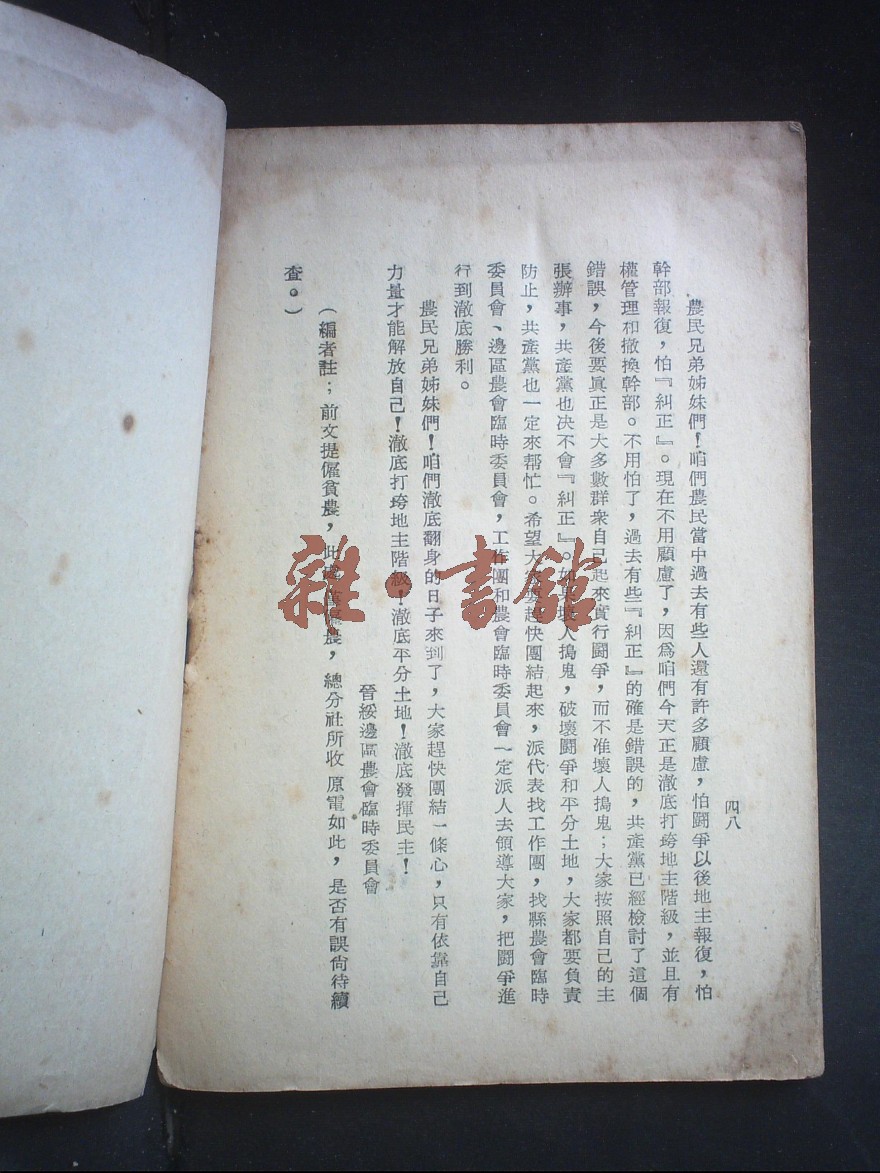 四八
農民兄弟姊妹們！咱們農民當中過去有些人還有許多顧慮，怕鬪爭以後地主報復，怕
幹部報復，怕『糾正』。現在不用顧慮了，因爲咱們今天正是澈底打垮地主階級，並且有
權管理和撤換幹部。不用怕了，過去有些『糾正』的確是錯誤的，共產黨已經檢討了這個
錯誤，今後要眞正是大多數群衆自己起來實行鬪爭，而不准壞人搗鬼；大家按照自己的主
張辦事，共產黨也決不會『糾正』。如果壞人搗鬼，破壞鬪爭和平分土地，大家都要負責
防止，共產黨也一定來帮忙。希望大家要趕快團結起來，派代表找工作團，找縣農會臨時
委員會、邊區農會臨時委員會，工作團和農會臨時委員會一定派人去領導大家，把鬪爭進
行到澈底勝利。
農民兄弟姊妹們！咱們澈底翻身的日子來到了，大家趕快團結一條心，只有依靠自己
力量才能解放自己！澈底打垮地主階級！澈底平分土地！澈底發揮民主！
晉綏邊區農會臨時委員會
（編者註；前文提僱貧農，此處農，總分社所收原電如此，是否有誤尙待續
查。）
雜·書館